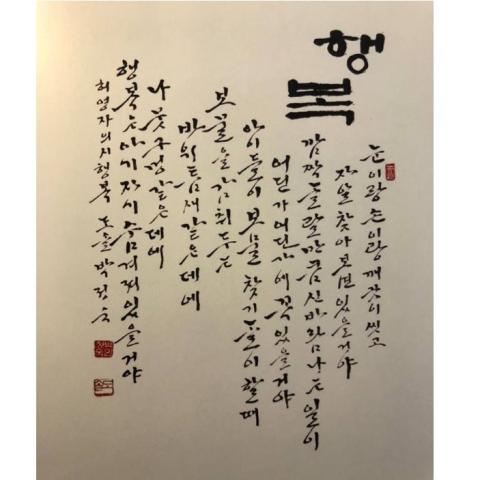 행복
눈이랑 손이랑 깨끗이 씻고
자알 찾아보면 있을거야
깜짝 놀랄만큼 신바람나는 일이
어딘가 어딘가에 꼭 있을거야
아이들이 보물찾기 놀이할때
보물을 감춰두는
바위틈새 같은데에
나뭇구멍 같은데에
행복은 아기자기 숨겨져있을거야
허영자의 시 행복